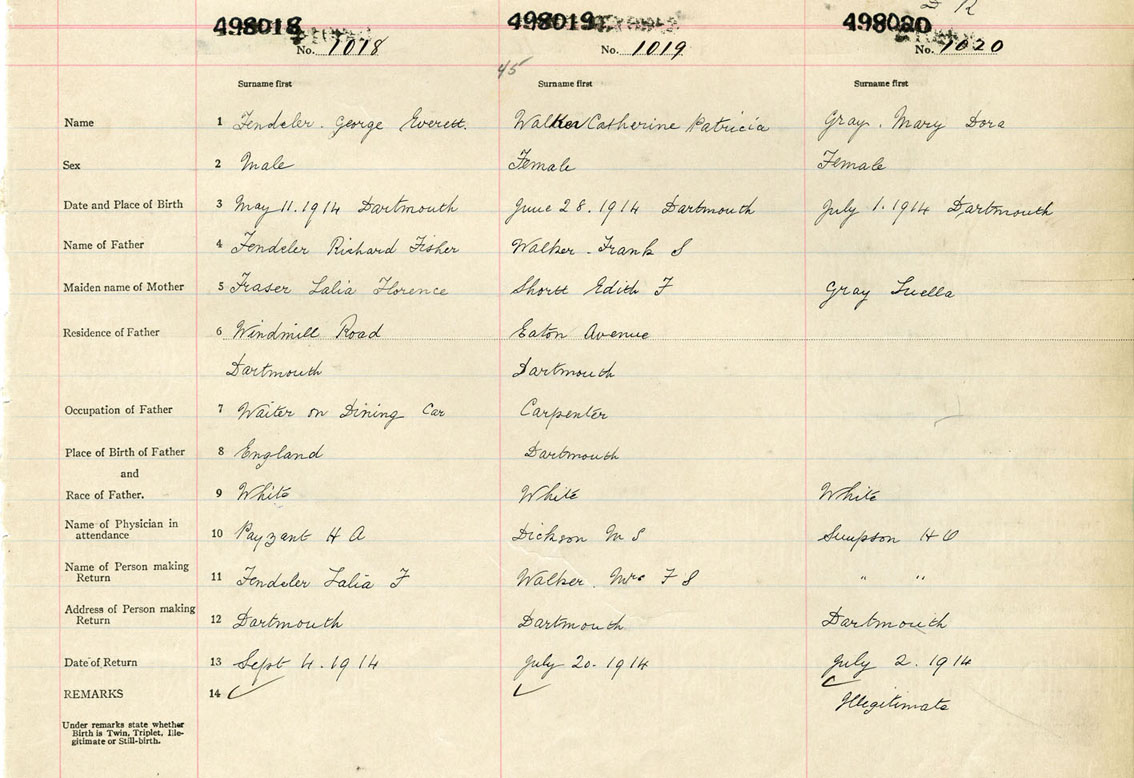 498018 498019 498020
No. 1018 No. 1019 No. 1020
45
Surname first Surname first Surname first
Name 1 Fendeler. George Everett. Walker Catherine Patricia Gray. Mary Dora
Sex 2 Male Female Female
Date and Place of Birth 3 May 11. 1914 Dartmouth June 28. 1914 Dartmouth July 1. 1914 Dartmouth
Name of Father 4 Fendeler Richard Fisher Walker. Frank S
Maiden name of Mother 5 Fraser Lalia Florence Shortt Edith F Gray Luella
Residence of Father 6 Windmill Road Eaton Avenue
Dartmouth Dartmouth
Occupation of Father 7 Waiter on Dining Car Carpenter
Place of Birth of Father 8 England Dartmouth
and
Race of Father. 9 White White White
Name of Physician in
attendance 10 Payzant H A Dickson M S Simpson H O
Name of Person making
Return 11 Fendeler Lalia F Walker. Mrs F S " "
Address of Person making
Return 12 Dartmouth Dartmouth Dartmouth
Date of Return 13 Sept 4. 1914 July 20. 1914 July 2. 1914
REMARKS 14 ✓ ✓ ✓
Illegitimate
Under remarks state whether
Birth is Twin, Triplet, Ille-
gitimate or Still-birth.